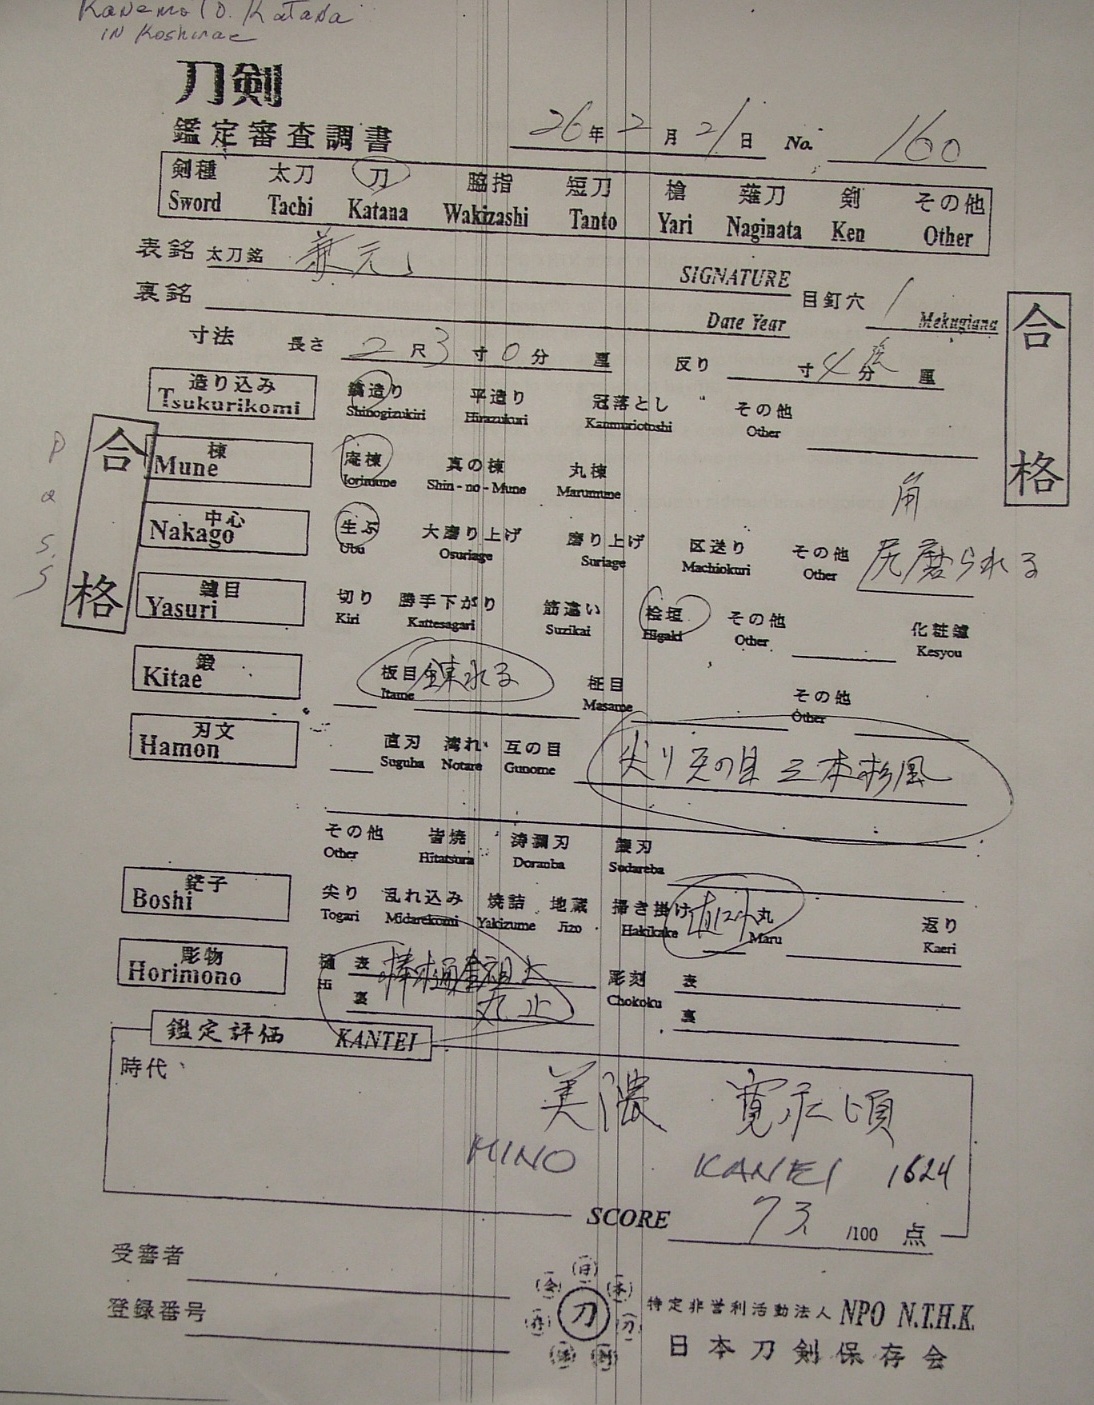 Kanemoto Katana
in Koshirae
刀剣
鑑定審査調書
26年 2月 21日 No. 160
剣種 太刀 刀 脇指 短刀 槍 薙刀 剣 その他
Sword Tachi Katana Wakizashi Tanto Yari Naginata Ken Other
表銘 太刀銘 兼元 SIGNATURE
裏銘 Date Year
目釘穴 1 Mekugiana
合格
寸法 長さ 2尺 3寸 0分 厘 反り 寸 4分 厘
造り込み 鎬造り 平造り 冠落とし その他
Tsukurikomi Shinogizukiri Hirazukuri Kanmuriotoshi Other
合格
Pass
棟 庵棟 真の棟 丸棟
Mune Iorimune Shin-no-Mune Marumune
角
中心 生ぶ 大磨り上げ 磨り上げ 区送り その他 尻磨られる
Nakago Ubu Osuriage Suriage Machiokuri Other
鑢目 切り 勝手下がり 筋違い 桧垣 その他 化粧鑢
Yasuri Kiri Kattesagari Suzikai Higaki Other Kesyou
鍛 板目 錬れる 柾目 その他
Kitae Itame Masame Other
刃文 直刃 湾れ 互の目 尖り互の目 三本杉風
Hamon Suguha Notare Gunome
その他 皆焼 涛瀾刃 簾刃
Other Hitatsura Doranba Sudareba
鋩子 尖り 乱れ込み 焼詰 地蔵 掃き掛け 直に小丸 返り
Boshi Togari Midarekomi Yakizume Jizo Hakikake Maru Kaeri
彫物 樋 表 棒樋 彫刻 表
Horimono Hi 裏 丸止 Chokoku 裏
鑑定評価 KANTEI
時代、
美濃 寛永頃
MINO KANEI 1624
SCORE 73 /100 点
受審者
登録番号
刀
特定非営利活動法人 NPO N.T.H.K.
日本刀剣保存会